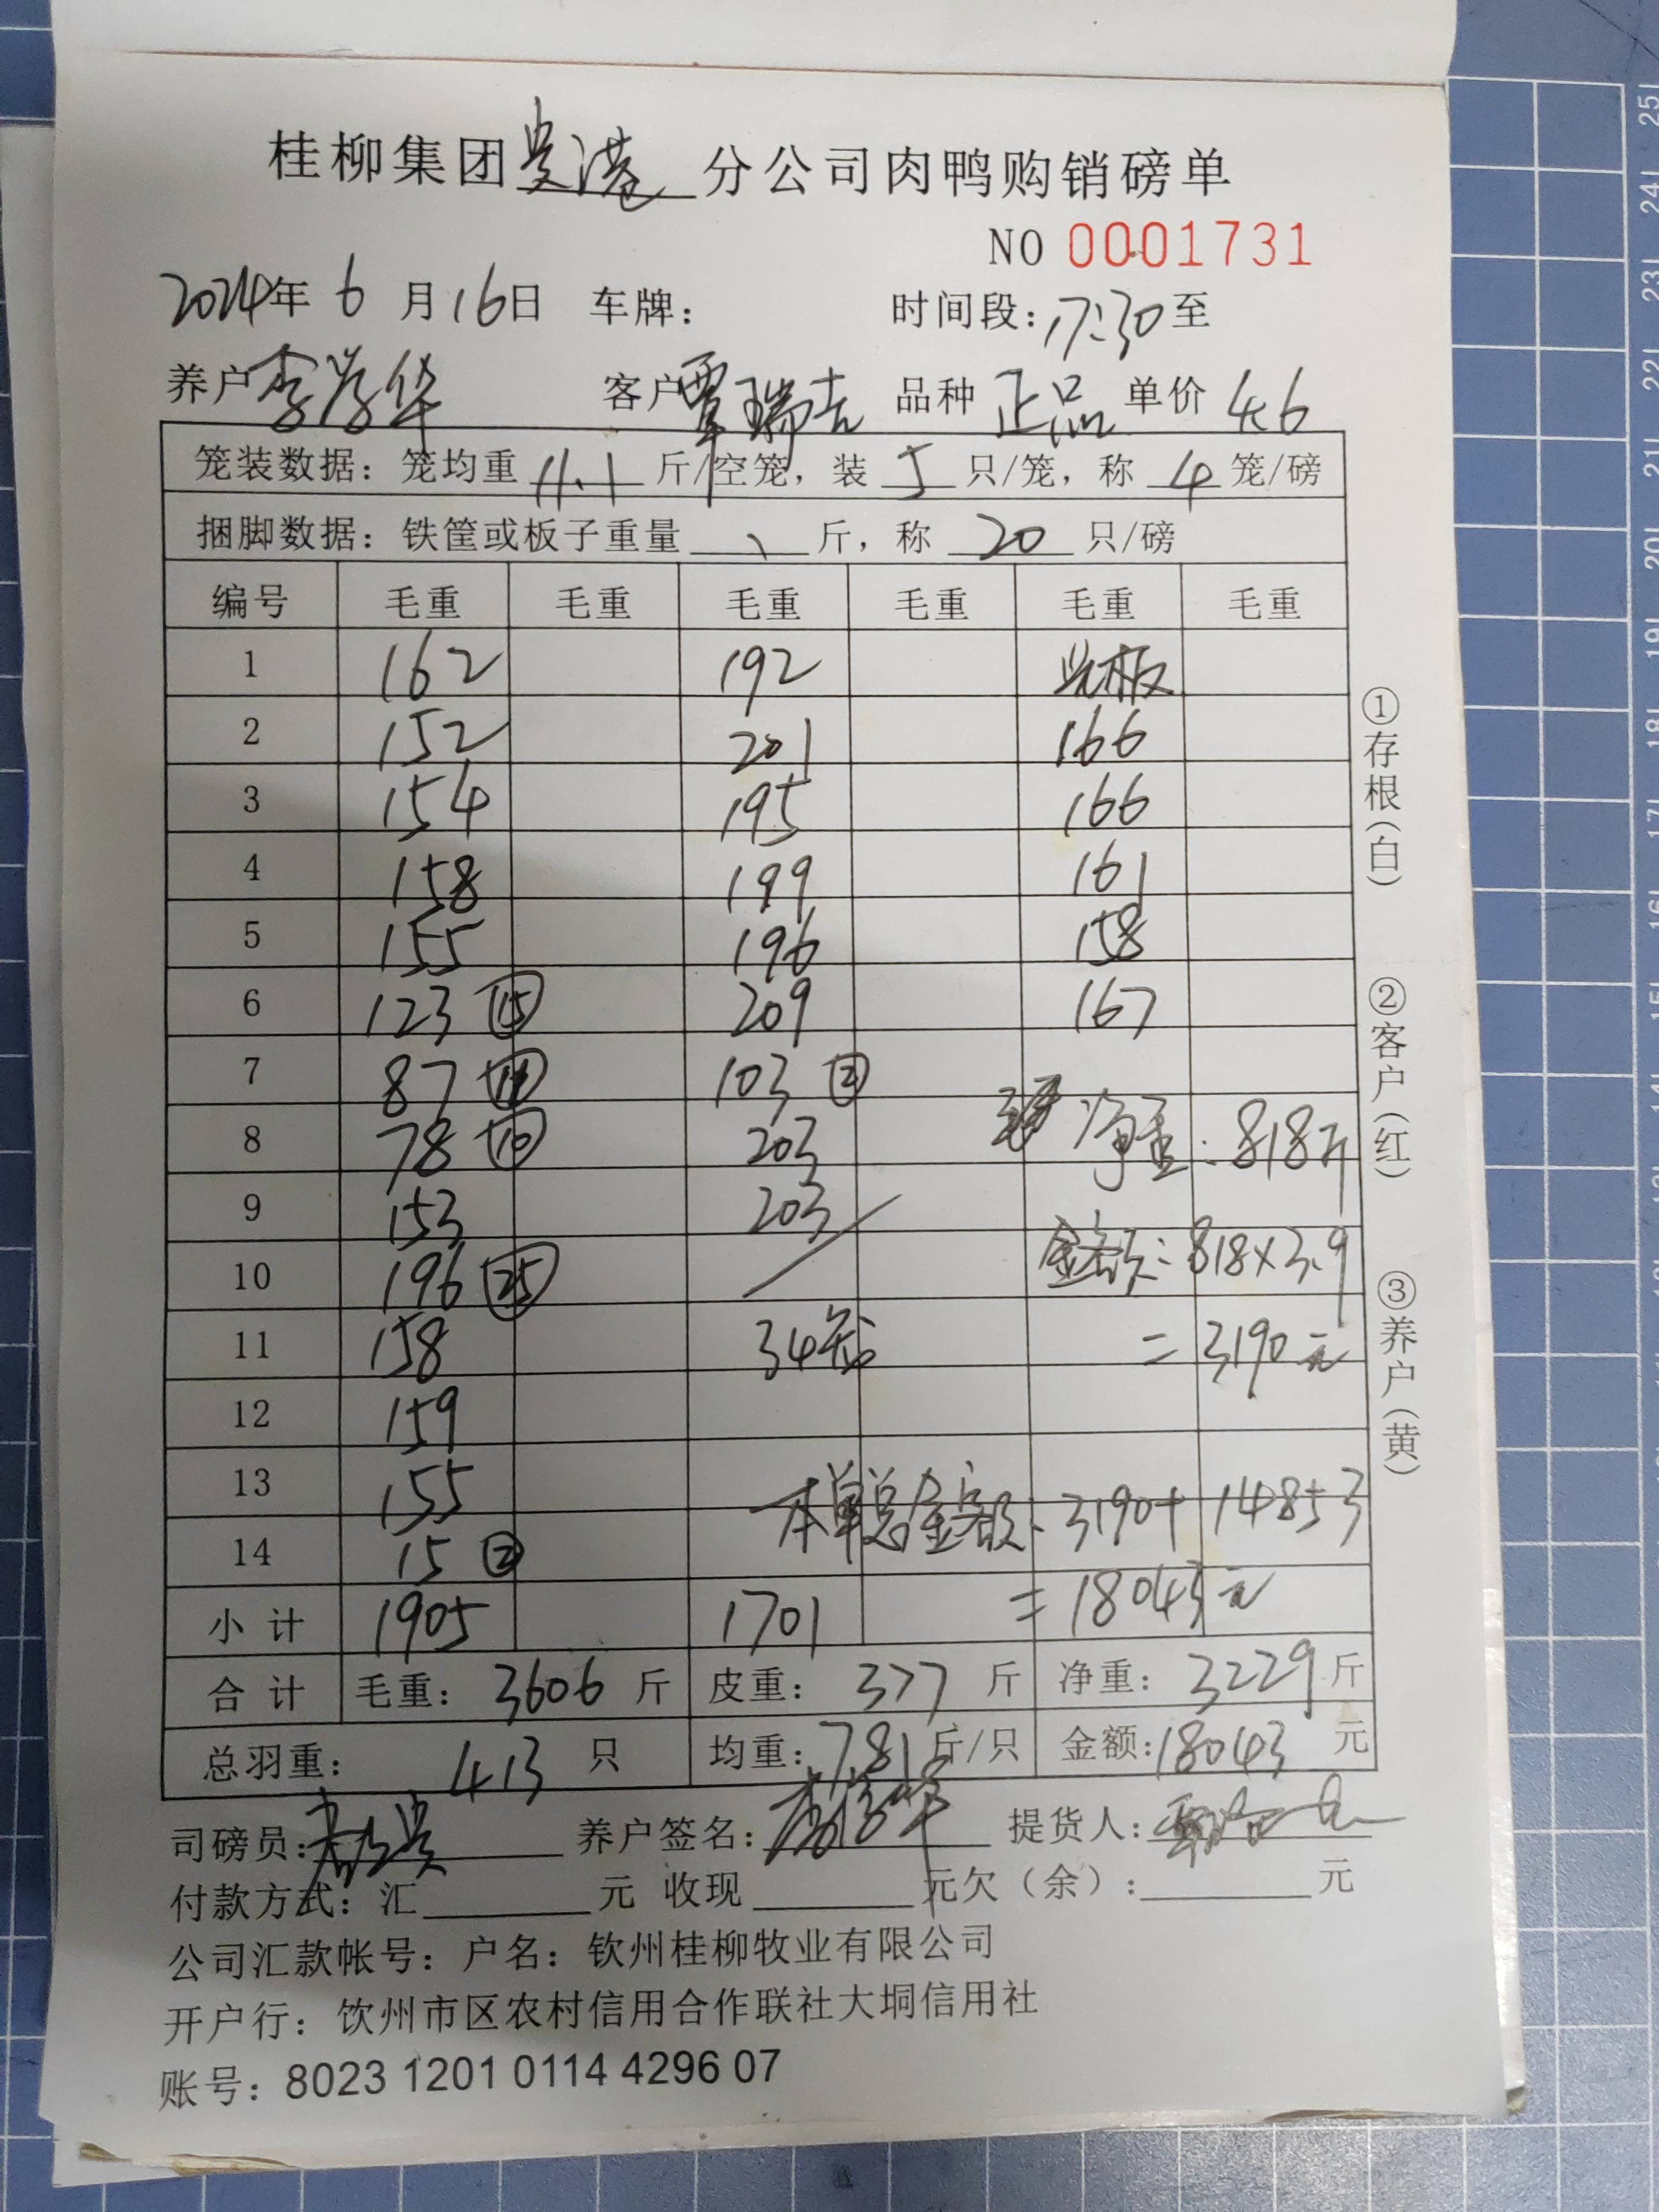 桂柳集团贵港分公司肉鸭购销磅单
NO 0001731
2024年 6 月 16日 车牌: 时间段: 17:30 至
养户 李学华 客户 覃瑞吉 品种 正品 单价 4.6
笼装数据: 笼均重 11.1 斤/空笼, 装 5 只/笼, 称 4 笼/磅
捆脚数据: 铁筐或板子重量 、 斤, 称 20 只/磅
编号 毛重 毛重 毛重 毛重 毛重 毛重
1 162 192 板
2 152 201 166
3 154 195 166
4 158 199 161
5 155 196 158
6 123 ⑮ 209 167
7 87 103 ②
8 78 ⑩ 203 净重: 818斤
9 153 203
10 196 ㉕ 金额: 818×3.9
11 158 34笼 = 3190元
12 159
13 155 本单总金额: 3190+14853
14 15 ②
小计 1905 1701 = 18043元
合计 毛重: 3606 斤 皮重: 377 斤 净重: 3229 斤
总羽重: 413 只 均重: 7.81 斤/只 金额: 18043 元
司磅员: 养户签名: 提货人:
付款方式: 汇 元 收现 元欠(余): 元
公司汇款帐号: 户名: 钦州桂柳牧业有限公司
开户行: 钦州市区农村信用合作联社大垌信用社
账号: 8023 1201 0114 4296 07
①存根(白)
②客户(红)
③养户(黄)
25
24
23
22
21
20
19
18
17
16
15
14
13